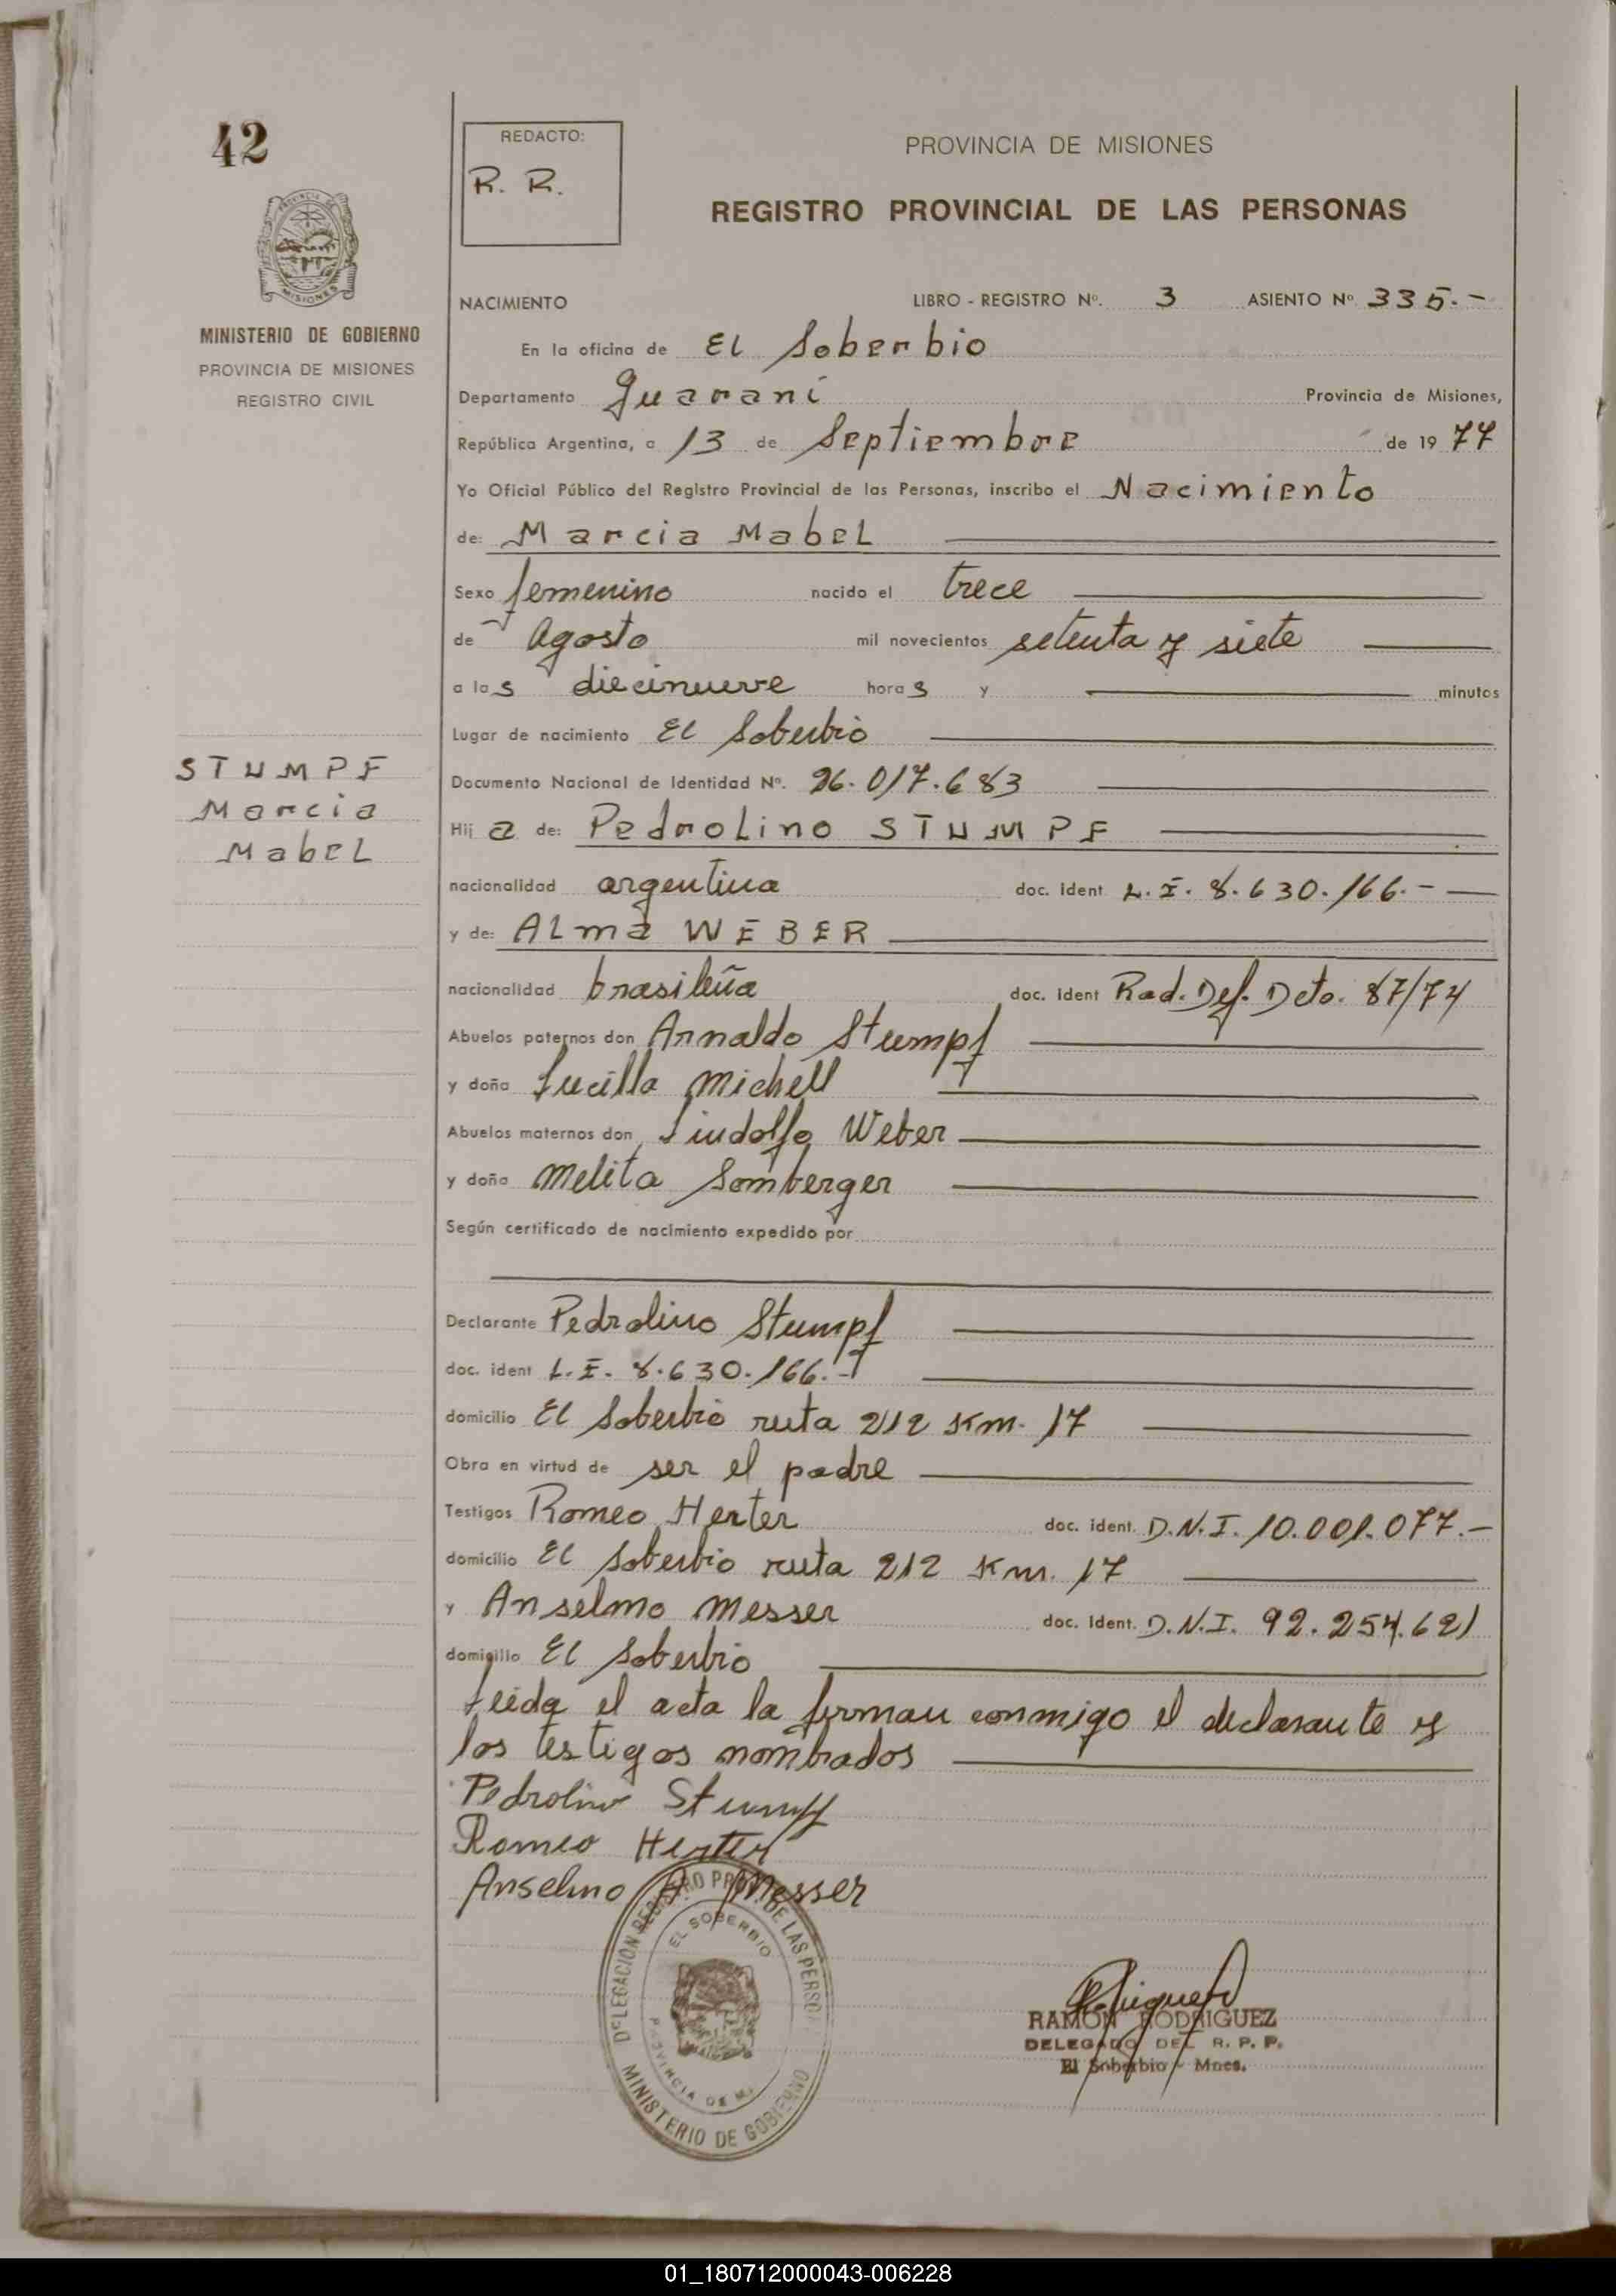 42
REDACTO:
R. R.
PROVINCIA DE MISIONES
REGISTRO PROVINCIAL DE LAS PERSONAS
MISIONES
MINISTERIO DE GOBIERNO
PROVINCIA DE MISIONES
REGISTRO CIVIL
NACIMIENTO LIBRO - REGISTRO Nº. 3 ASIENTO Nº 335.-
En la oficina de El Soberbio
Departamento Guaraní Provincia de Misiones,
República Argentina, a 13 de Septiembre de 1977
Yo Oficial Público del Registro Provincial de las Personas, inscribo el Nacimiento
de: Marcia Mabel
Sexo femenino nacido el trece
de Agosto mil novecientos setenta y siete
a las diecinueve horas y minutos
Lugar de nacimiento El Soberbio
STUMPF
Marcia
Mabel
Documento Nacional de Identidad Nº. 26.017.683
Hija de: Pedrolino STUMPF
nacionalidad argentina doc. ident L.E. 8.630.166.-
y de: Alma WEBER
nacionalidad brasileña doc. ident Rad. Def. Dcto. 87/74
Abuelos paternos don Arnaldo Stumpf
y doña Lucilla Michell
Abuelos maternos don Lindolfo Weber
y doña Melita Somberger
Según certificado de nacimiento expedido por
Declarante Pedrolino Stumpf
doc. ident L.E. 8.630.166.-
domicilio El Soberbio ruta 212 Km. 17
Obra en virtud de ser el padre
Testigos Romeo Herter doc. ident. D.N.I. 10.001.077.-
domicilio El Soberbio ruta 212 Km. 17
y Anselmo Messer doc. ident. D.N.I. 92.254.621
domicilio El Soberbio
Leida el acta la firman conmigo el declarante y
los testigos nombrados
Pedrolino Stumpf
Romeo Herter
Anselmo A. Messer
DELEGACION REGISTRO PROV. DE LAS PERSONAS
EL SOBERBIO
PROVINCIA DE M.
MINISTERIO DE GOBIERNO
RAMON RODRIGUEZ
DELEGADO DEL R. P. P.
El Soberbio - Mnes.
01_180712000043-006228